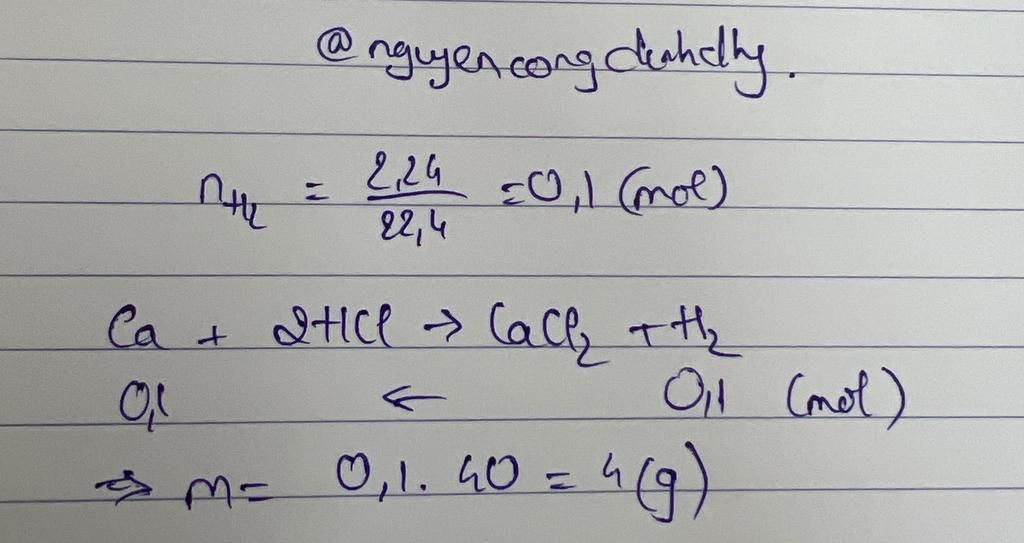 @nguyencongdanhdhy.
n_H₂ = 2,24/22,4 = 0,1 (mol)
Ca + 2HCl → CaCl₂ + H₂
0,1 ← 0,1 (mol)
⇒ m = 0,1 . 40 = 4 (g)